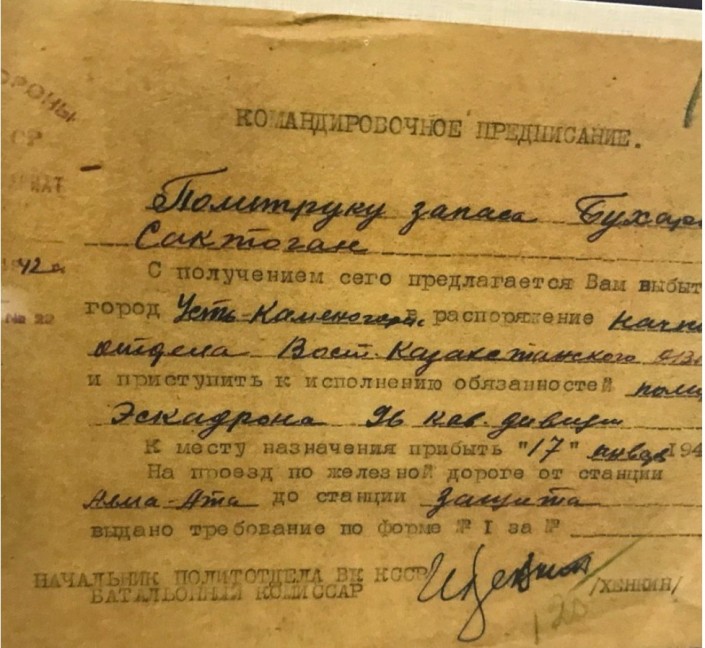 ОРОНЫ
СР
КОМАНДИРОВОЧНОЕ ПРЕДПИСАНИЕ.
Политруку запаса Бухар
Сактоган
42 г.
С получением сего предлагается Вам выбыт
город Усть-Каменогорск в распоряжение
№ 22
отдела Вост. Казахстанского
и приступить к исполнению обязанностей поли
Эскадрона 96 кав. дивизии
К месту назначения прибыть "17" января 194
На проезд по железной дороге от станции
Алма-Ата до станции Защита
выдано требование по форме № I за №
НАЧАЛЬНИК ПОЛИТОТДЕЛА ВК КССР
БАТАЛЬОННЫЙ КОМИССАР
/ХЕНКИН/
120